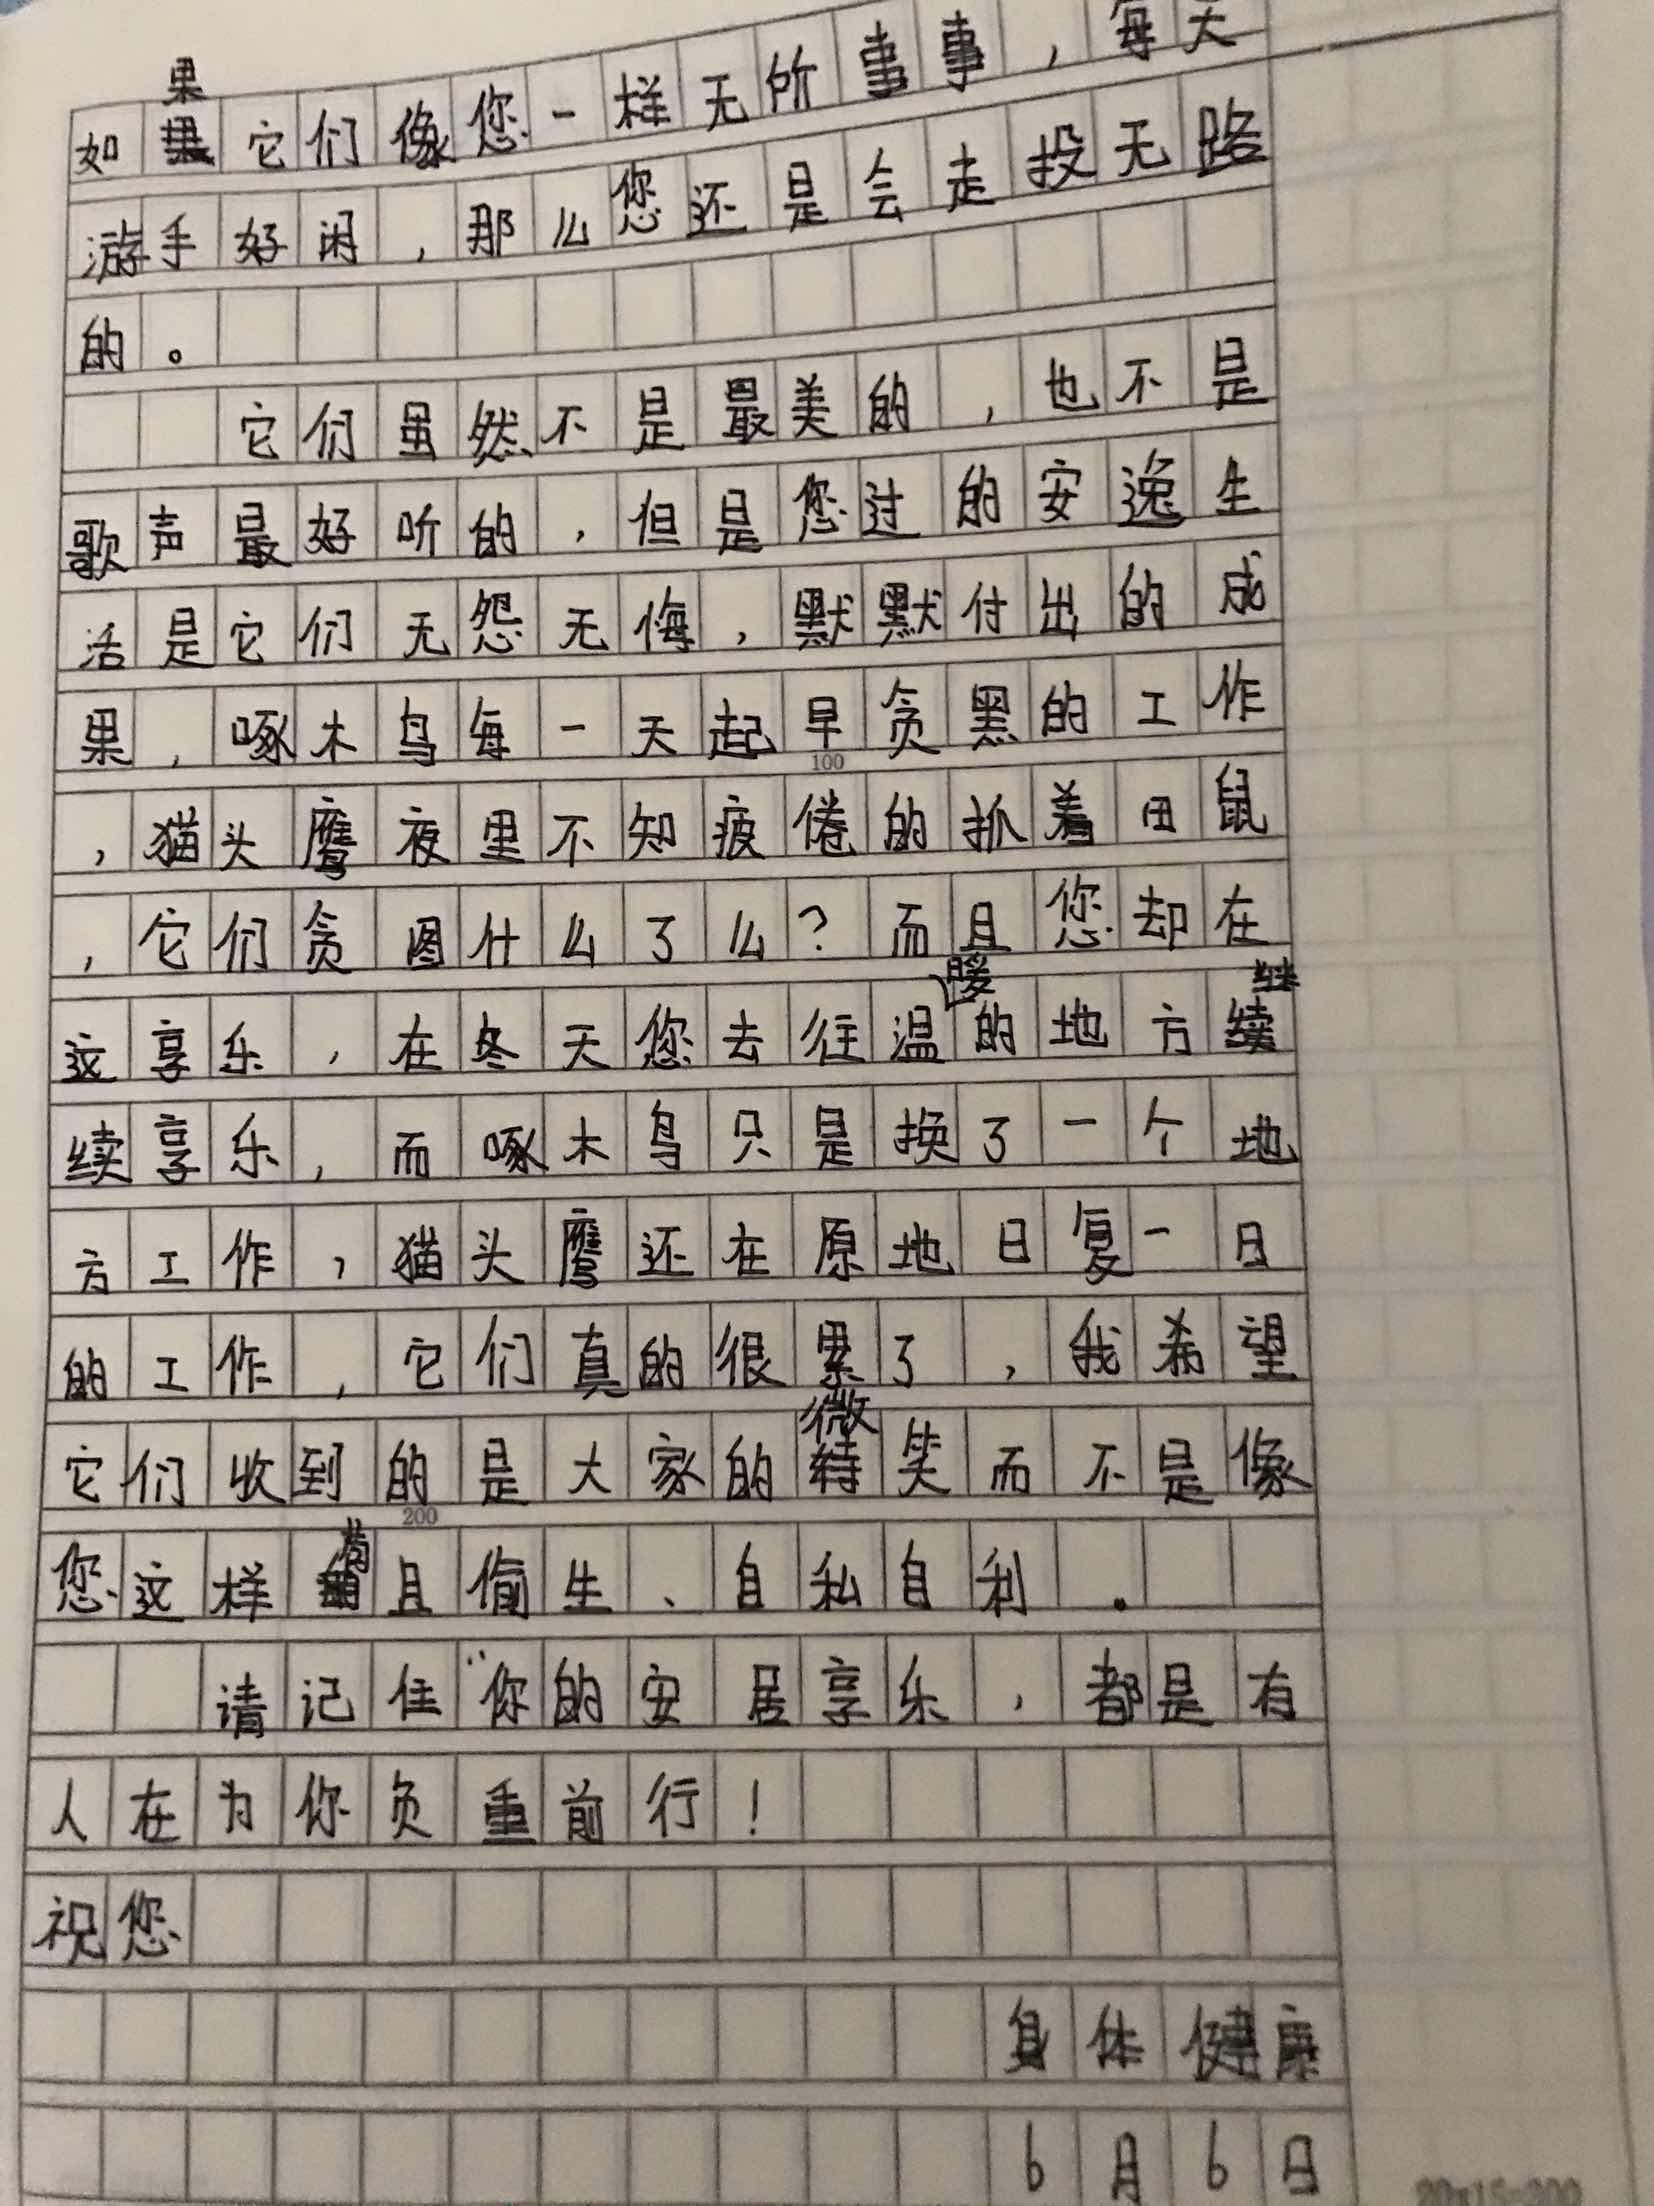 如果它们像您一样无所事事，每天
游手好闲，那么您还是会走投无路
的。
它们虽然不是最美的，也不是
歌声最好听的，但是您过的安逸生
活是它们无怨无悔，默默付出的成
果，啄木鸟每一天起早贪黑的工作
100
，猫头鹰夜里不知疲倦的抓着田鼠
，它们贪图什么了么？而且您却在
这享乐，在冬天您去往温暖的地方继
续享乐，而啄木鸟只是换了一个地
方工作，猫头鹰还在原地日复一日
的工作，它们真的很累了，我希望
它们收到的是大家的微笑而不是像
200
您这样苟且偷生、自私自利。
请记住“你的安居享乐，都是有
人在为你负重前行！
祝您
身体健康
6月6日
20×15=300